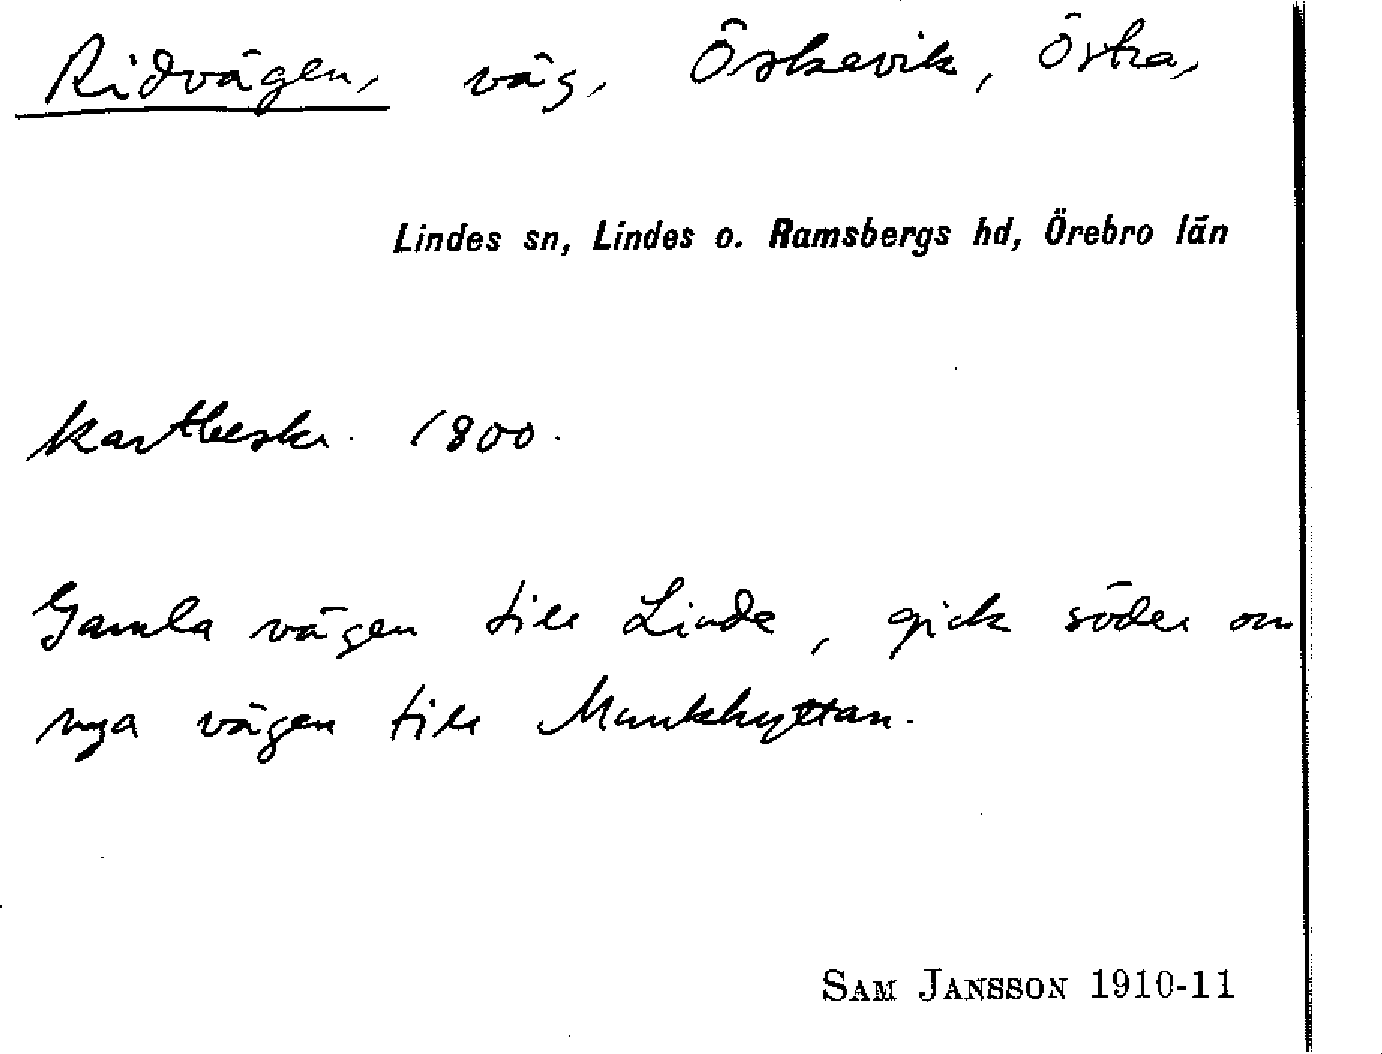 Ridvägen, väg, Öskevik, Östra,
Lindes sn, Lindes o. Ramsbergs hd, Örebro län
kartbeskr. 1800.
Gamla vägen till Linde, gick söder om
nya vägen till Munkhyttan.
SAM JANSSON 1910-11